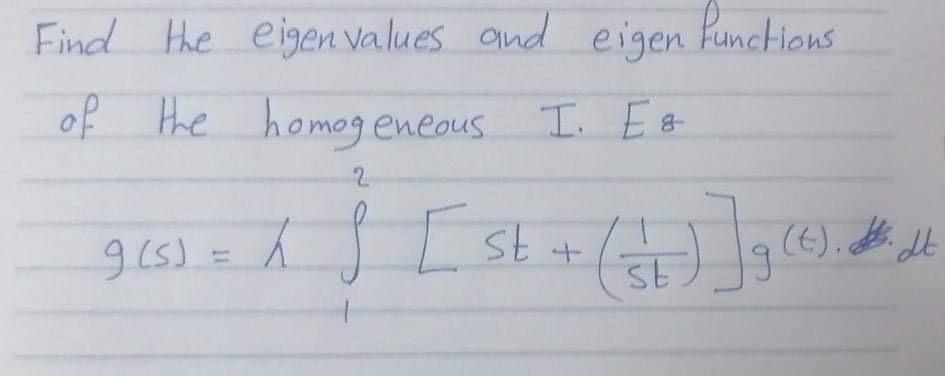 Find the eigenvalues and eigen functions
of the homogeneous I. E :
g(s) = λ ∫₁² [ st + (1/st) ] g(t). dt